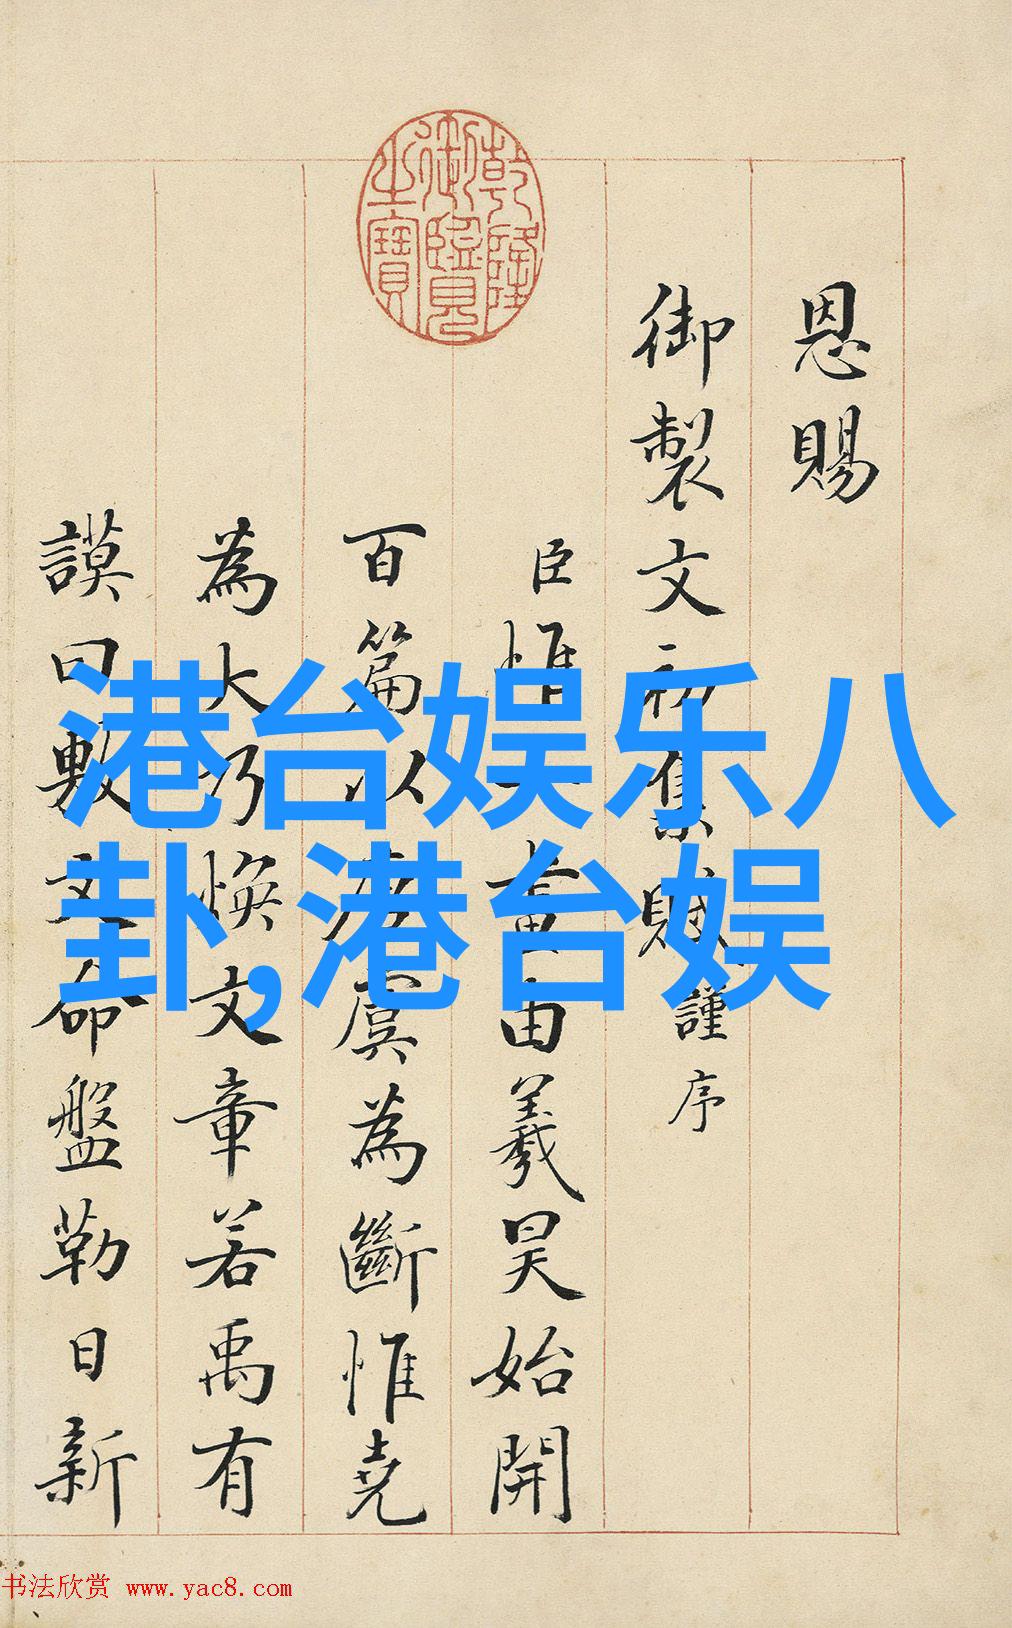 乾隆御覽之寶
恩賜
御製文初集謹序
臣惟一畫由羲昊始開
百篇以唐虞為斷惟堯
為大乃煥文章若禹有
謨曰敷文命盤勒日新
港台娱乐八
卦,港台娱
书法欣赏 www.yac8.com